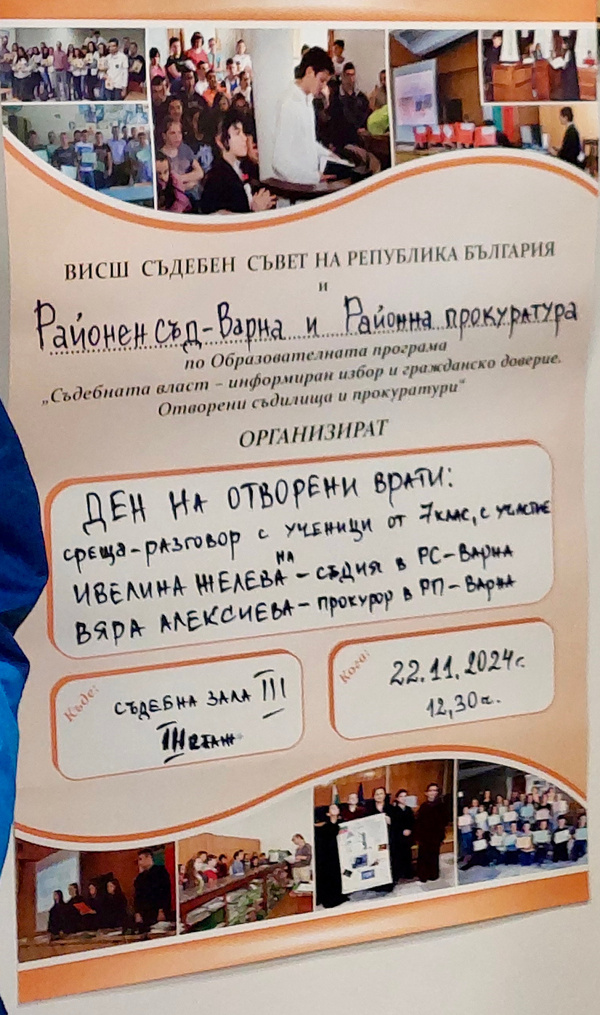 ВИСШ СЪДЕБЕН СЪВЕТ НА РЕПУБЛИКА БЪЛГАРИЯ
и
Районен съд-Варна и Районна прокуратура
по Образователната програма
„Съдебната власт – информиран избор и гражданско доверие.
Отворени съдилища и прокуратури“
ОРГАНИЗИРАТ
ДЕН НА ОТВОРЕНИ ВРАТИ:
среща-разговор с ученици от 7 клас, с участие
на
ИВЕЛИНА ЖЕЛЕВА – съдия в РС-Варна
ВЯРА АЛЕКСИЕВА – прокурор в РП-Варна
Къде:
СЪДЕБНА ЗАЛА III
III етаж
Кога:
22.11.2024г.
12,30ч.